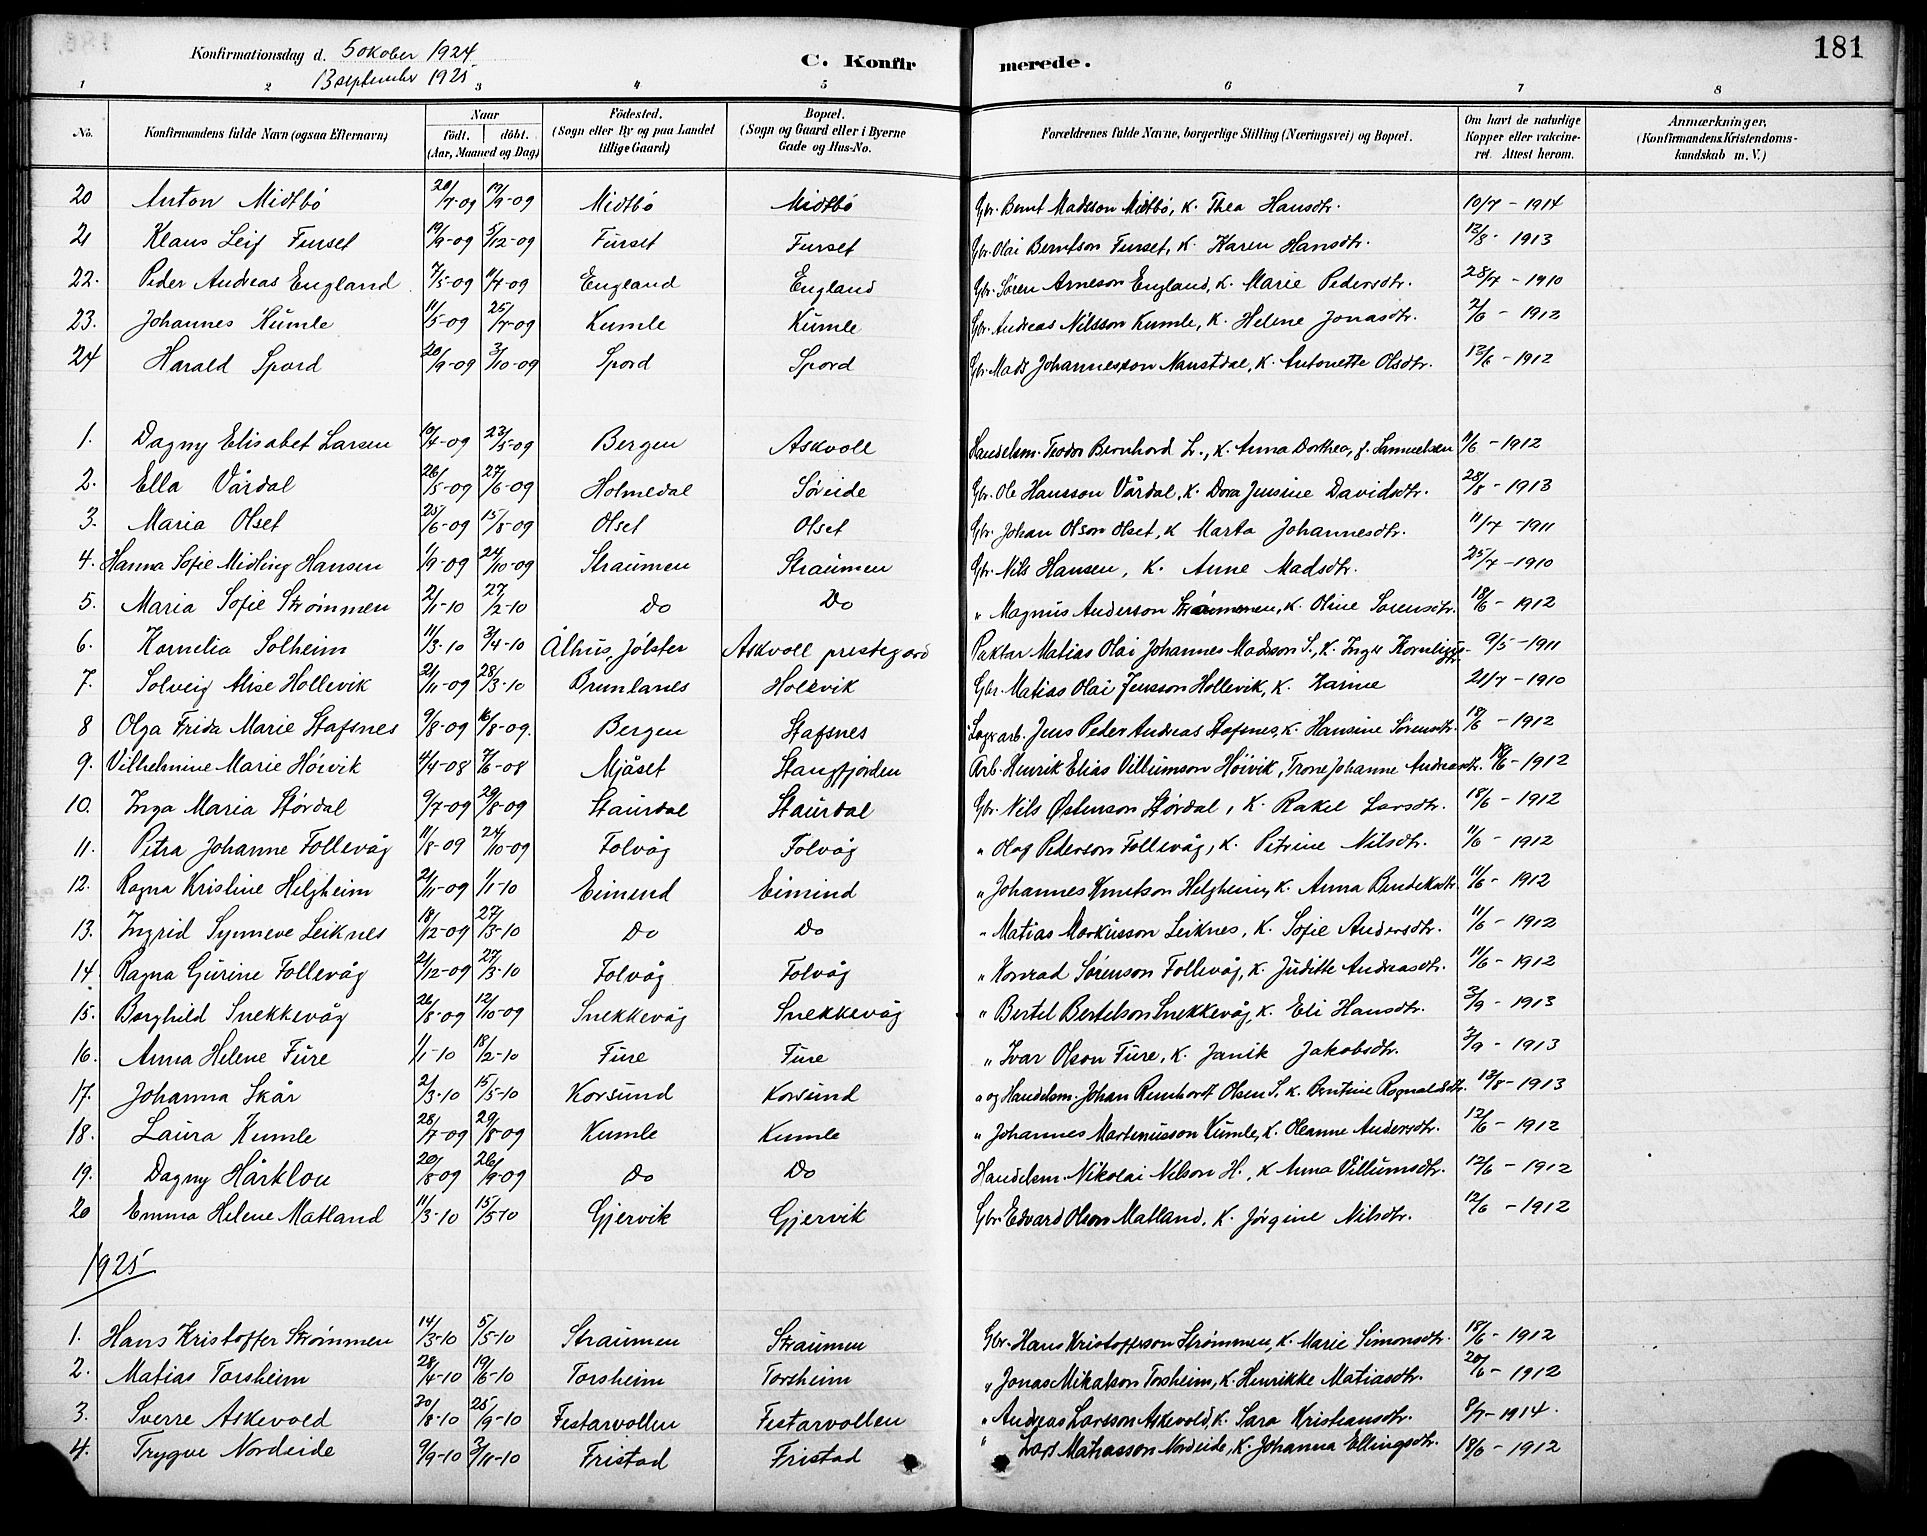 181
Konfirmationsdag d. 5 okober 1924
13 september 1925
C. Konfirmerede.
1 2 3 4 5 6 7 8
No. Konfirmandens fulde Navn (ogsaa Efternavn) Naar födt. döbt. (Aar, Maaned og Dag) Födested. (Sogn eller By og paa Landet tillige Gaard) Bopæl. (Sogn og Gaard eller i Byerne Gade og Hus-No. Forældrenes fulde Navne, borgerlige Stilling (Næringsvei) og Bopæl. Om havt de naturlige Kopper eller vakcineret. Attest herom. Anmærkninger. (Konfirmandens Kristendomskundskab m. V.)
20 Anton Midtbö 20/7-09 19/9-09 Midtbö Midtbö Gbr. Bernt Madsson Midtbö, K. Thea Hansdtr. 10/7 - 1914
21 Klaus Leif Furset 19/9-09 5/12-09 Furset Furset Gbr. Olai Berntson Furset, K. Karen Hansdtr. 13/8 - 1913
22. Peder Andreas England 7/5-09 11/7-09 England England Gbr. Sören Arneson England, K. Marie Pedersdtr. 28/7 - 1910
23. Johannes Kumle 11/5-09 25/7-09 Kumle Kumle Gbr. Andreas Nilsson Kumle, K. Helene Jonasdtr. 2/6 - 1912
24 Harald Spord 20/9-09 3/10-09 Spord Spord Gbr. Mads Johannesson Naustdal, K. Antonette Olsdtr. 13/6 - 1912
1. Dagny Elisabet Larsen 19/4-09 23/5-09 Bergen Askvoll Handelsm. Teodor Bernhard L., K. Anna Dorthea, f. Samuelsen 11/6 - 1912
2. Ella Vårdal 26/5-09 27/6-09 Holmedal Söreide Gbr. Ole Hansson Vårdal, K. Dora Jensine Davidsdtr. 28/8 - 1913
3. Maria Olset 25/6-09 15/8-09 Olset Olset Gbr. Johan Olson Olset, K Marta Johannesdtr. 11/7 - 1911
4. Hanna Sofie Midling Hansen 1/9-09 24/10-09 Straumen Straumen Gbr. Nils Hansen, K. Anne Madsdtr. 25/7 - 1910
5. Maria Sofie Strømmen 2/1-10 27/2-10 Do Do " Magnus Anderson Straumen, K. Oline Sørensdtr. 18/6 - 1912
6. Kornelia Solheim 11/3-10 3/4-10 Ålhus, Jølster Askvoll prestegard Paktar Matias Olai Johannes Madsson S., K. Inger Korneliusdtr. 9/5 - 1911
7. Solveig Alise Hollevik 21/11-09 28/3-10 Brunlanes Hollevik Gbr. Matias Olai Jensson Hollevik, K. Karine 21/7 - 1910
8 Olga Frida Marie Stafsnes 9/8-09 16/8-09. Bergen Stafsnes Lagerarb. Jens Peder Andreas Stafsnes, K. Hansine Sørensdtr. 18/6 - 1912
9. Vilhelmine Marie Höivik 4/4-08 7/6-08 Mjåset Stangfjorden Arb. Henrik Elias Villumson Höivik, Trone Johanne Andreasdtr. 18/6 - 1912
10. Inga Maria Stördal 9/7-09 29/8-09 Staurdal Staurdal Gbr. Nils Østenson Størdal, K. Rakel Larsdtr. 18/6 - 1912
11. Petra Johanne Follevåg 11/8-09 24/10-09 Folvåg Folvåg " Olaf Pederson Follevåg, K. Petrine Nilsdtr. 11/6 - 1912
12. Ragna Kristine Helgheim 21/11-09 1/1-10 Eimind Eimind " Johannes Knutson Helgheim, K. Anna Bendiksdtr. 11/6 - 1912
13. Ingrid Synneve Leiknes 18/12-09 27/3-10 Do Do " Matias Markusson Leiknes, K. Sofie Andersdtr. 11/6 - 1912
14. Ragna Gurine Follevåg 21/12-09 27/3-10 Folvåg Folvåg " Konrad Sørenson Follevåg, K. Juditte Andreasdtr. 11/6 - 1912
15. Borghild Snekkevåg 26/8-09 12/10-09 Snekkevåg Snekkevåg " Bertel Bertelson Snekkevåg, K. Eli Hansdtr. 3/9 - 1913
16. Anna Helene Fure 1/1-10 18/2-10 Fure Fure " Ivar Olson Fure, K. Janik Jakobsdtr. 3/9 - 1913
17. Johanna Skår 2/3-10 15/5-10 Korsund Korsund " og Handelsm. Johan Reinhardt Olsen S. K. Bentine Ragnaldsdtr. 13/8 - 1913
18. Laura Kumle 28/7-09 29/8-09 Kumle Kumle " Johannes Martinusson Kumle, K. Oleanne Andersdtr. 12/6 - 1912
19. Dagny Hårklou 20/8-09 26/9-09 Do Do Handelsm. Nikolai Nilson H., K Anna Villumsdtr. 12/6 - 1912
20 Emma Helene Matland 11/3-10 15/5-10 Gjervik Gjervik Gbr. Edvard Olson Matland, K. Jørgine Nilsdtr. 12/6 - 1912
1925
1. Hans Kristoffer Strømmen 14/3-10 5/5-10 Straumen Straumen Gbr. Hans Kristofferson Strømmen, K. Marie Simonsdtr. 18/6 - 1912
2. Matias Torsheim 28/4-10 19/6-10 Torsheim Torsheim " Jonas Mikalson Torsheim, K. Henrikke Matiasdtr. 20/6 - 1912
3. Sverre Askevold 30/8-10 25/9-10 Festarvollen Festarvollen " Andreas Larsson Askevold, K. Sara Kristiansdtr. 9/7 - 1914.
4. Trygve Nordeide 9/9-10 3/11-10 Fristad Fristad " Lars Matiasson Nordeide, K. Johanna Ellingsdtr. 18/6 - 1912